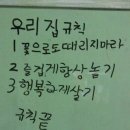 우리 집 규칙
1 꽃으로도 때리지마라
2 즐겁게 항상 놀기
3 행복하게 살기
규칙 끝